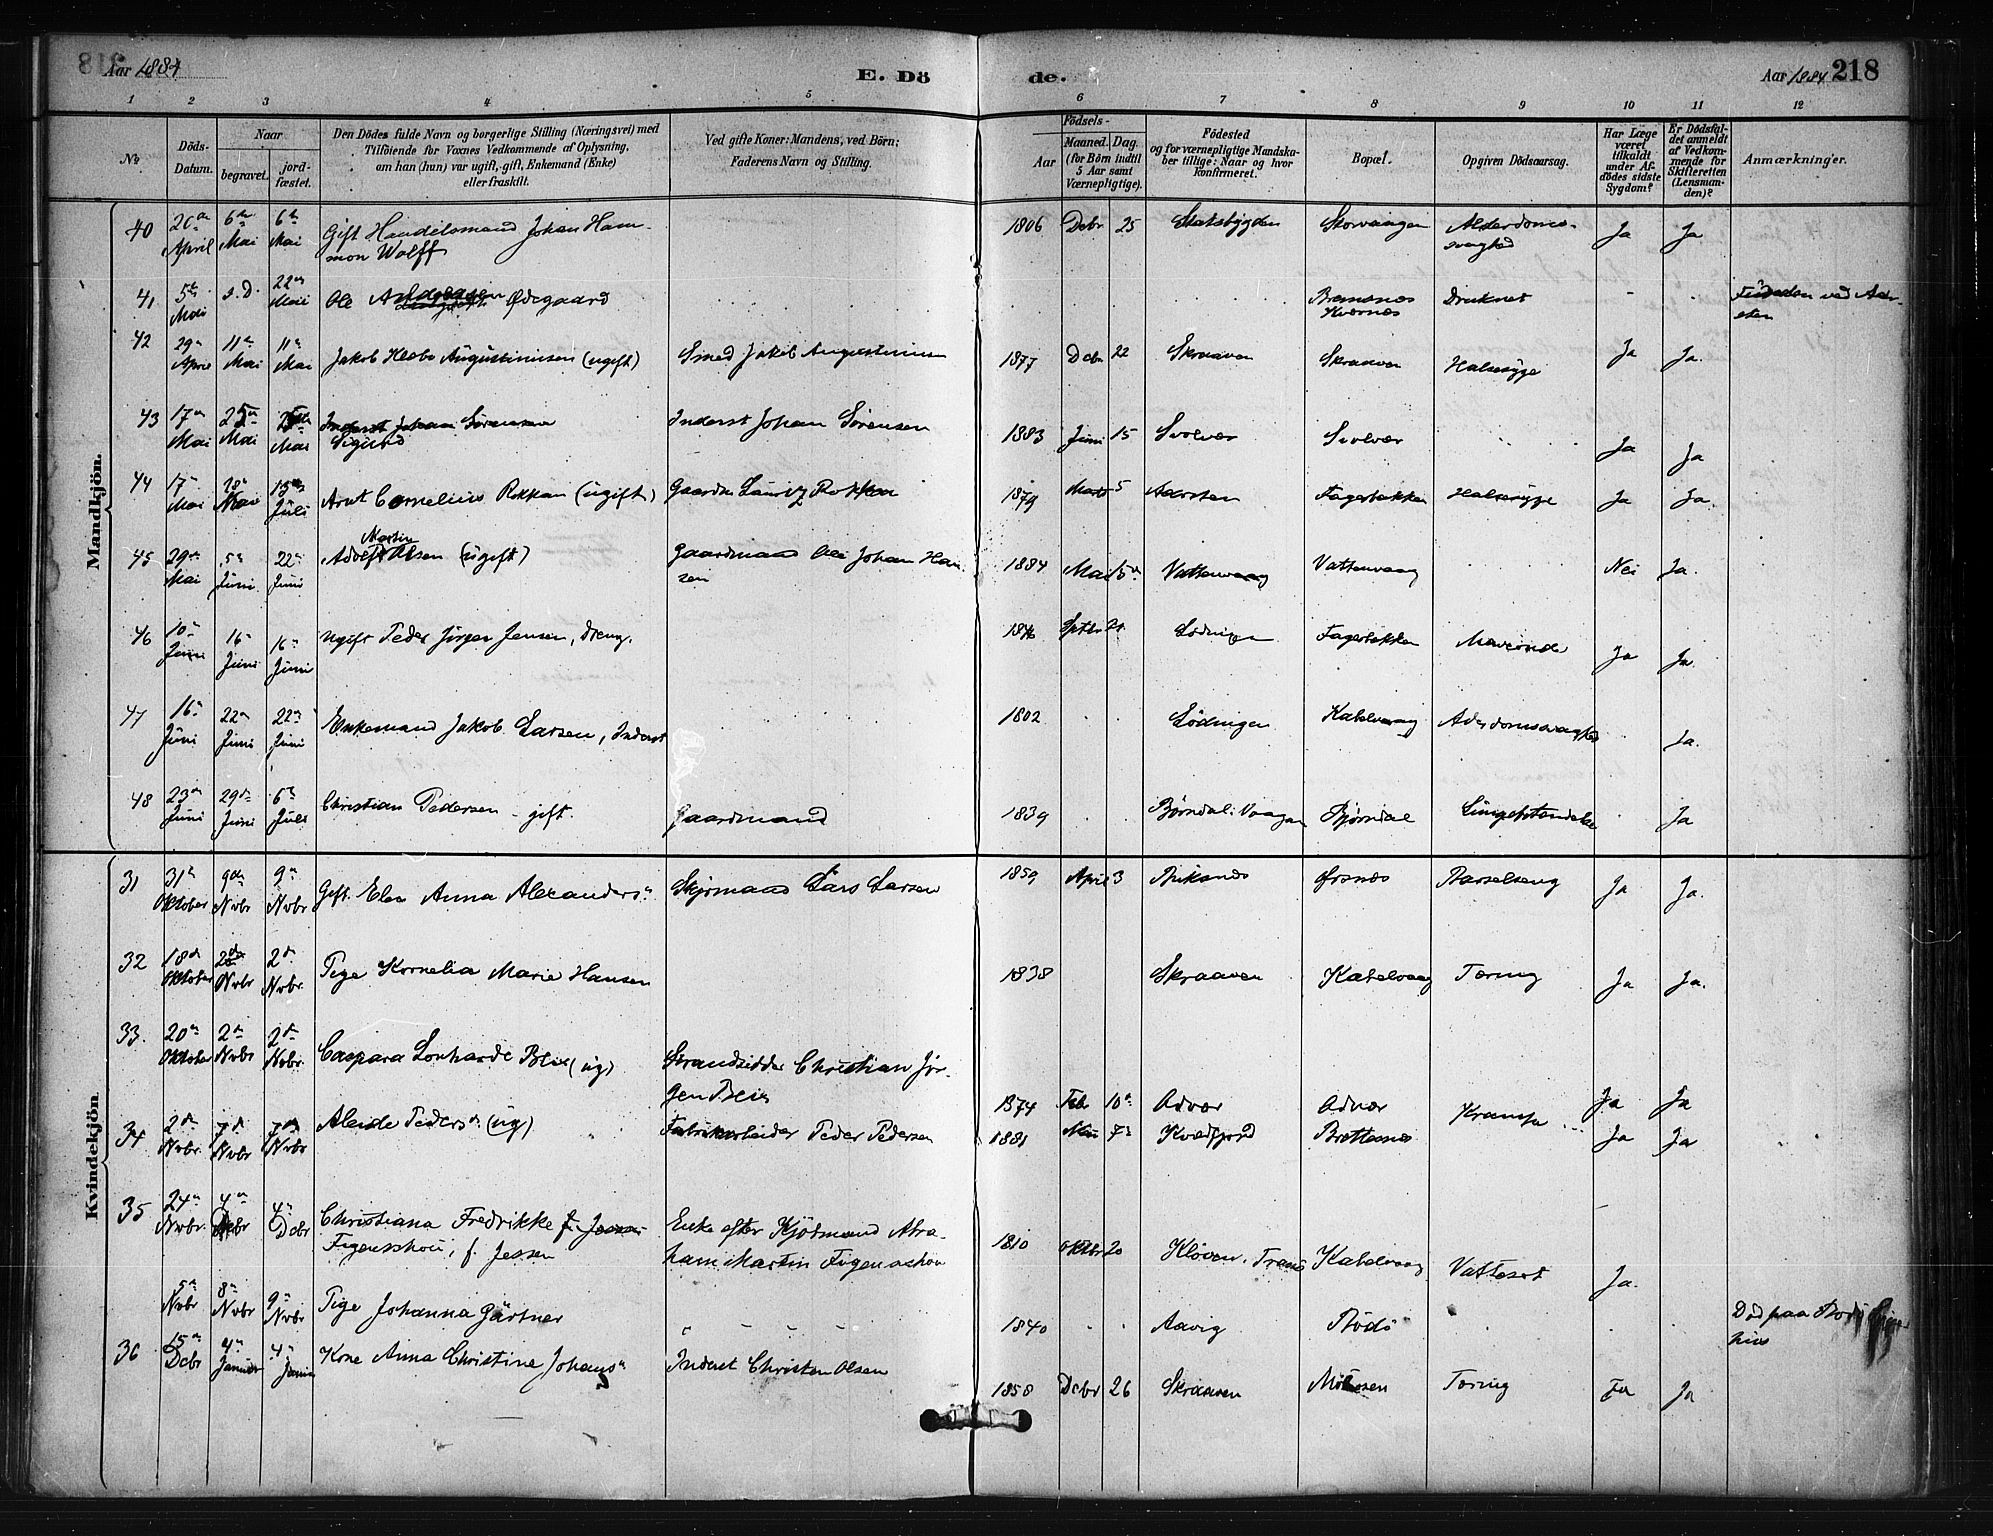 Aar 1884
E. Dö
de.
Aar 1884
218
1 2 3 4 5 6 7 8 9 10 11 12
No
Döds-Datum.
Naar
begravet.
jord-fæstet.
Den Dödes fulde Navn og borgerlige Stilling (Næringsvei) med
Tilföiende for Voxnes Vedkommende af Oplysning,
om han (hun) var ugift, gift, Enkemand (Enke)
eller fraskilt.
Ved gifte Koner: Mandens, ved Börn:
Faderens Navn og Stilling.
Födsels-
Aar
Maaned. Dag.
(for Börn indtil
5 Aar samt
Værnepligtige).
Födested
og for værnepligtige Mandska-
ber tillige: Naar og hvor
konfirmeret.
Bopæl.
Opgiven Dödsaarsag.
Har Læge
været
tilkaldt
under Af-
dödes sidste
Sygdom?
Er Dödsfal-
det anmeldt
af Vedkom-
mende for
Skifteretten
(Lensman-
den)?
Anmærkninger.
Mandkjön.
40 26de April 6te Mai 6te Mai Gift Handelsmand Johan Ham- 1806 Decbr 25 Statsbygden Storvaagen Alderdoms- Ja Ja
mon Wolff svaghed
41 5te Mai s.D. 22de Mai Ole Ødegaard Bremsnes Druknet
Kværnes
42 29de April 11te Mai 11te Mai Jakob Augustinusen (ugift) Smed Jakob Augustinusen 1877 Dcbr 22 Skraaven Skraaven Halssyge Ja Ja.
43 17de Mai 25de Mai Mai Inderst Johan Sörensen Inderst Johan Sörensen 1883 Juni 15 Svolvær Svolvær Ja Ja
Sigurd
44 17de Mai Mai 13de Juli Arnt Cornelius Rokkan (ugift) Gaardm Lauritz Rokkan 1879 Marts 5 Fagerbakken Halssyge Ja Ja.
Martin
45 29de Mai 5te Juni 22de Juni Adolf Olsen (ugift) Gaardmand Ole Johan Han- 1884 Mai Vattervaag Vattervaag Nei Ja.
sen
46 10de Juni 16de Juni 16de Juni Ugift Peder Jörgen Jensen, dreng. Septbr Lödingen Fagerbakken Ja Ja.
47 16de Juni 22de Juni 22de Juni Enkemand Jakob Larsen, Inderst 1802 Lödingen Kabelvaag Alderdomssvaghed Ja.
48 23de Juni 29de Juni 6te Juli Christian Pedersen - gift. Gaardmand 1839 Børndal: Vaagan Bjørndal Lungebetændelse Ja
Kvindekjön.
31 31te Oktober 9de Nvbr 9de Nvbr Gift. Elen Anna Alexandersd. Larsen 1859 April 3 Ørsnes Barselseng Ja Ja.
32 18de Oktober 2de Nvbr 2de Nvbr Pige Kornelia Marie Hansen 1838 Skraaven Kabelvaag Tæring Ja Ja.
33. 20de Oktober 2de Nvbr 2de Nvbr. Caspara Lonharde Bleis (ug) Strandsidder Christian Jör-
gen Bleis 1874 Feb 10de Ja Ja
34 2de Nvbr 7de Nvbr 7de Nvbr Aleide Pedersd. (ug) Fabrikarbeider Peder Pedersen 1881 Mai 7de Kvædfjord Brettesnes Krampe Ja Ja
35 24de Nvbr. 4de Dcbr 4de Dcbr Christiana Fredrikke f. Enke efter Abra- 1810 Oktbr 20 Kløven. Trans Kabelvaag Vattersot Ja.
Figenschou, f. Jessen ham Martin Figenschou
5te Nvbr 8de Nvbr 9de Nvbr Pige Johanna Gärtner 1840 Aavig Bödö Död paa Bodö Syge-
hus
36 15de Dcbr 4de Januar 4de Kone Anna Christine Johansd. Inderst Christen Olsen 1858 Dcbr 26 Skraaven Tæring Ja Ja